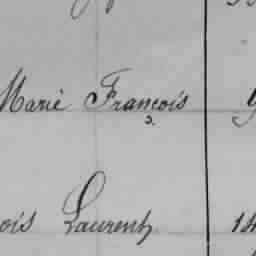 Marie François 9
ois Laurent 14